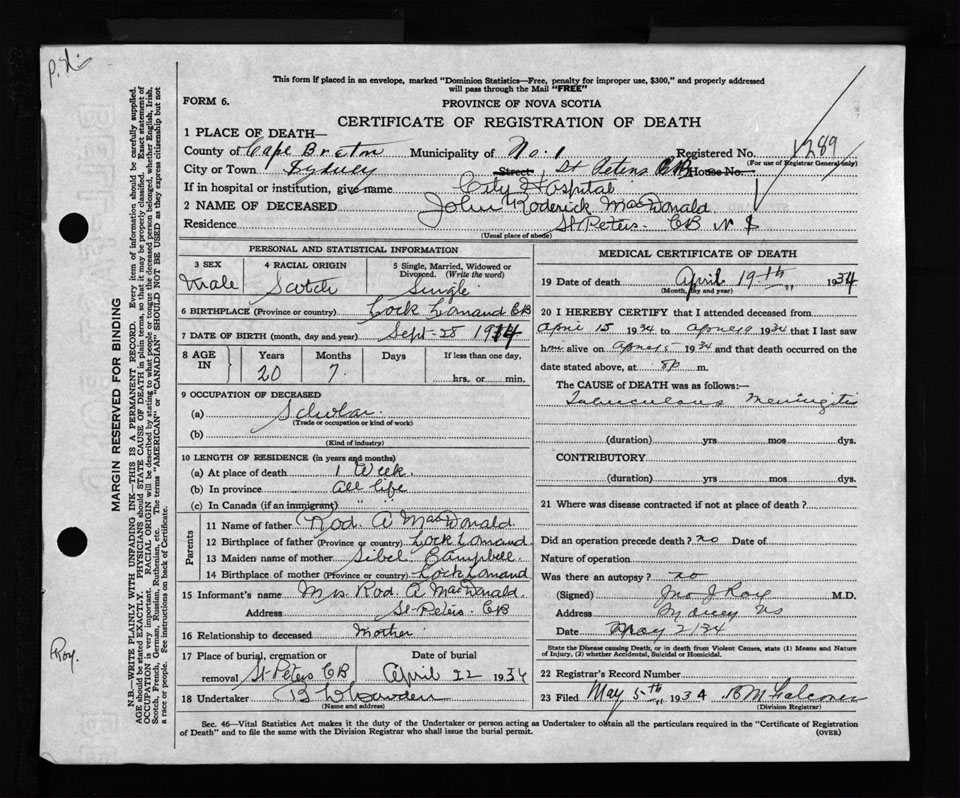 This form if placed in an envelope, marked "Dominion Statistics—Free, penalty for improper use, $300," and properly addressed
will pass through the Mail "FREE"
FORM 6.
PROVINCE OF NOVA SCOTIA
CERTIFICATE OF REGISTRATION OF DEATH
1 PLACE OF DEATH—
County of Cape Breton Municipality of No. 1 Registered No. 1289
(For use of Registrar General only)
City or Town Sydney Street St Peters CB House No.
If in hospital or institution, give name City Hospital
2 NAME OF DECEASED John Roderick MacDonald
Residence St Peters - CB N S
(Usual place of abode)
PERSONAL AND STATISTICAL INFORMATION
3 SEX 4 RACIAL ORIGIN 5 Single, Married, Widowed or Divorced. (Write the word)
Male Scotch Single
6 BIRTHPLACE (Province or country) Lock Lomand CB
7 DATE OF BIRTH (month, day and year) Sept-28 1914
8 AGE IN Years Months Days If less than one day,
20 7. hrs. or min.
9 OCCUPATION OF DECEASED
(a) Scholar
(Trade or occupation or kind of work)
(b)
(Kind of industry)
10 LENGTH OF RESIDENCE (in years and months)
(a) At place of death 1 Week.
(b) In province all life
(c) In Canada (if an immigrant) "
Parents
11 Name of father Rod. A MacDonald
12 Birthplace of father (Province or country) Lock Lomand
13 Maiden name of mother Sibel Campbell
14 Birthplace of mother (Province or country) Lock Lomand
15 Informant's name Mrs Rod. A. MacDonald
Address St-Peters. CB
16 Relationship to deceased Mother
17 Place of burial, cremation or removal St Peters CB Date of burial April 22 1934
18 Undertaker
(Name and address)
MEDICAL CERTIFICATE OF DEATH
19 Date of death April 19th 1934
(Month, day and year)
20 I HEREBY CERTIFY that I attended deceased from
April 15 1934 to 1934 that I last saw
him alive on 1934 and that death occurred on the
date stated above, at 8 p m.
The CAUSE OF DEATH was as follows:—
Tuberculous Meningitis
(duration) yrs mos dys.
CONTRIBUTORY
(duration) yrs mos dys.
21 Where was disease contracted if not at place of death?
Did an operation precede death? no Date of
Nature of operation
Was there an autopsy? no
(Signed) Jno J Roy M.D.
Address NS
Date May 2/34
State the Disease causing Death, or in death from Violent Causes, state (1) Means and Nature
of Injury, (2) whether Accidental, Suicidal or Homicidal.
22 Record Number
23 Filed May 5th 1934 B M Falconer
(Division Registrar)
Sec. 46—Vital Statistics Act makes it the duty of the Undertaker or person acting as Undertaker to obtain all the particulars required in the "Certificate of Registration
of Death" and to file the same with the Division Registrar who shall issue the burial permit.
(OVER)
MARGIN RESERVED FOR BINDING
N.B.—WRITE PLAINLY WITH UNFADING INK—THIS IS A PERMANENT RECORD. Every item of information should be carefully supplied.
AGE should be stated EXACTLY. PHYSICIANS should STATE CAUSE OF DEATH in plain terms, so that it may be properly classified. Exact statement of
OCCUPATION is very important. RACIAL ORIGIN will be described by stating to what people or tongue the deceased person belonged, whether English, Irish,
Scotch, French, German, Russian, Ruthenian, etc. The terms "AMERICAN" or "CANADIAN" SHOULD NOT BE USED as they express citizenship but not
a race or people. See instructions on back of Certificate.
Roy.